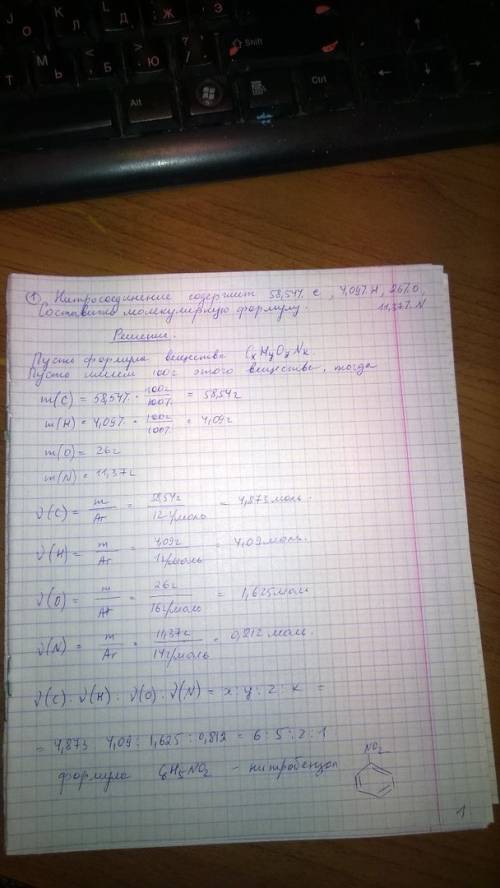 J Л Д Ж Э
О
К
L
:
"
Shift
М < > ?
Т Ь Б Ю /
Alt
Ctrl
① Нитросоединение содержит 58,54% C, 4,09% H, 26% O,
11,37% N
Составить молекулярную формулу.
Решение.
Пусть формула вещества CxHyOzNk
Пусть имеем 100г этого вещества, тогда
m(C) = 58,54% · 100г/100% = 58,54г
m(H) = 4,09% · 100г/100% = 4,09г
m(O) = 26г
m(N) = 11,37г
ν(C) = m/Ar = 58,54г/12г/моль = 4,873 моль.
ν(H) = m/Ar = 4,09г/1г/моль = 4,09 моль.
ν(O) = m/Ar = 26г/16г/моль = 1,625 моль
ν(N) = m/Ar = 11,37г/14г/моль = 0,812 моль.
ν(C) : ν(H) : ν(O) : ν(N) = x : y : z : k =
= 4,873 4,09 : 1,625 : 0,812 = 6 : 5 : 2 : 1
формула C6H5NO2 - нитробензол
NO2
1